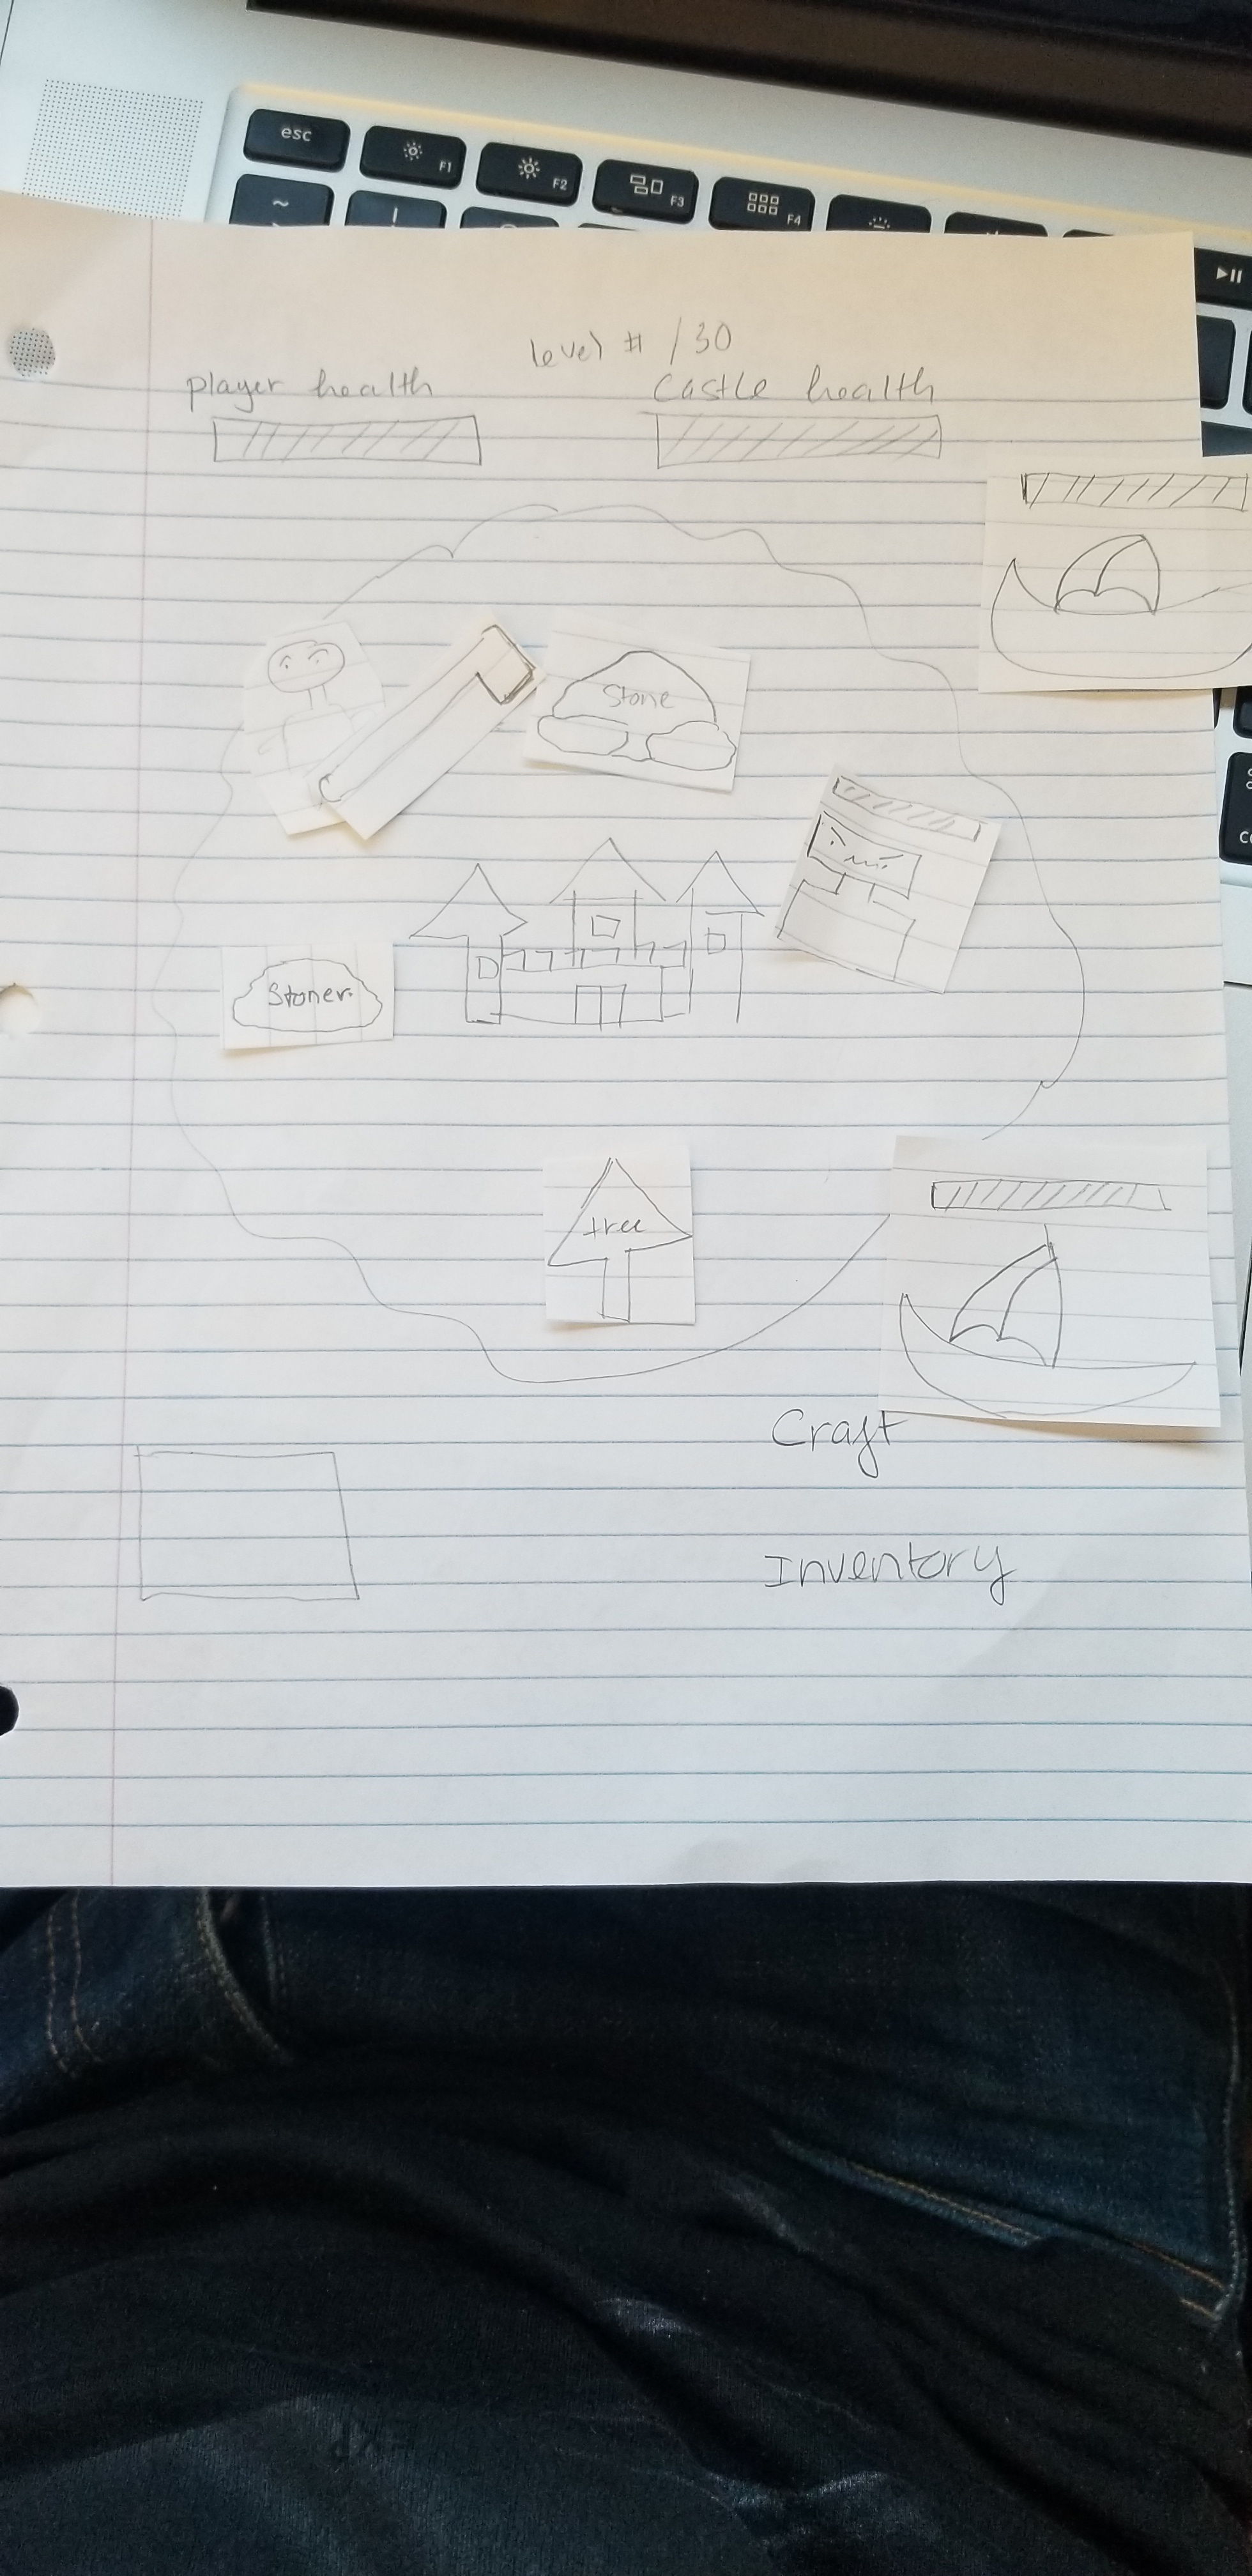 esc
F1
F2
F3
F4
~
level # /30
player health
castle health
Stone
Stoner
tree
Craft
Inventory